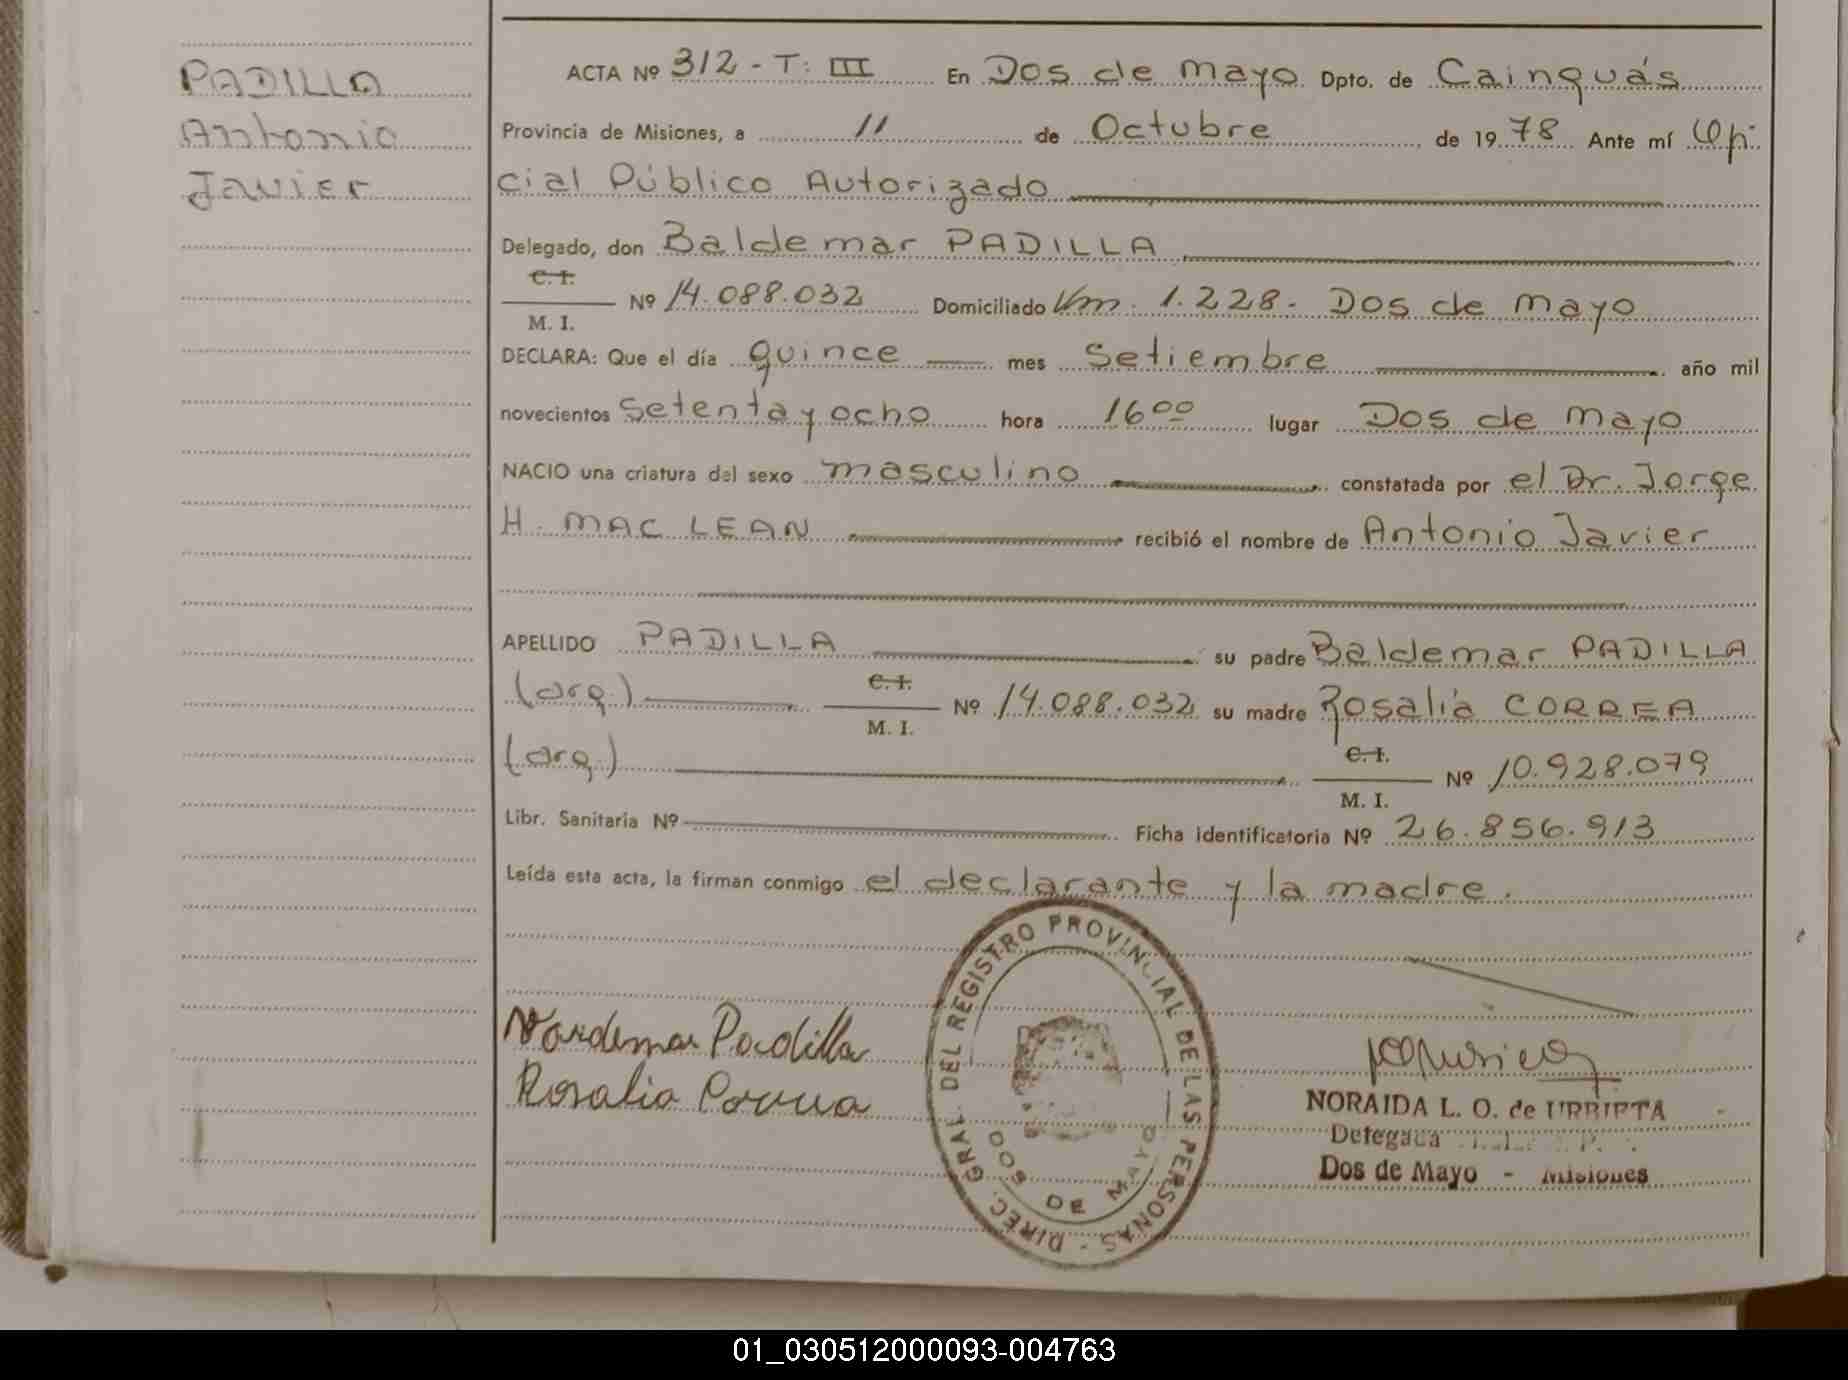 PADILLA
Antonio
Javier
ACTA Nº 312 - T: III En Dos de Mayo Dpto. de Cainguás
Provincia de Misiones, a 11 de Octubre de 1978 Ante mí Ofi
cial Público Autorizado
Delegado, don Baldemar PADILLA
C. I.
M. I. Nº 14.088.032 Domiciliado Km. 1.228- Dos de Mayo
DECLARA: Que el día quince mes Setiembre año mil
novecientos setenta y ocho hora 16 00 lugar Dos de Mayo
NACIO una criatura del sexo masculino constatada por el Dr. Jorge
H. MAC LEAN recibió el nombre de Antonio Javier
APELLIDO PADILLA su padre Baldemar PADILLA
(arg.) C. I. M. I. Nº 14.088.032 su madre Rosalia CORREA
(arg.) C. I. M. I. Nº 10.928.079
Libr. Sanitaria Nº Ficha identificatoria Nº 26.856.913
Leída esta acta, la firman conmigo el declarante y la madre.
Vardemar Padilla
Rosalia Correa
DIREC. GRAL. DEL REGISTRO PROVINCIAL DE LAS PERSONAS -
DOS DE MAYO
NORAIDA L. O. de URRIETA
Delegada
Dos de Mayo - Misiones
01_030512000093-004763